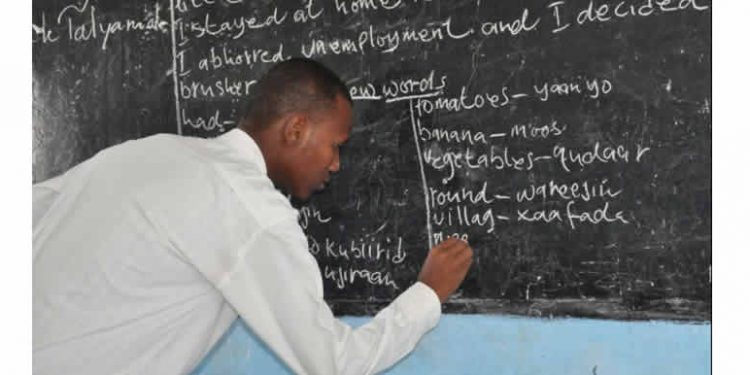 I stayed at home
Talyanida
I abhorred unemployment and I decided
brusher
new words
had-
tomatoes- yaanyo
banana- moos
vegetables- qudaar
round- wareesin
villag- xaafada
kubiirid